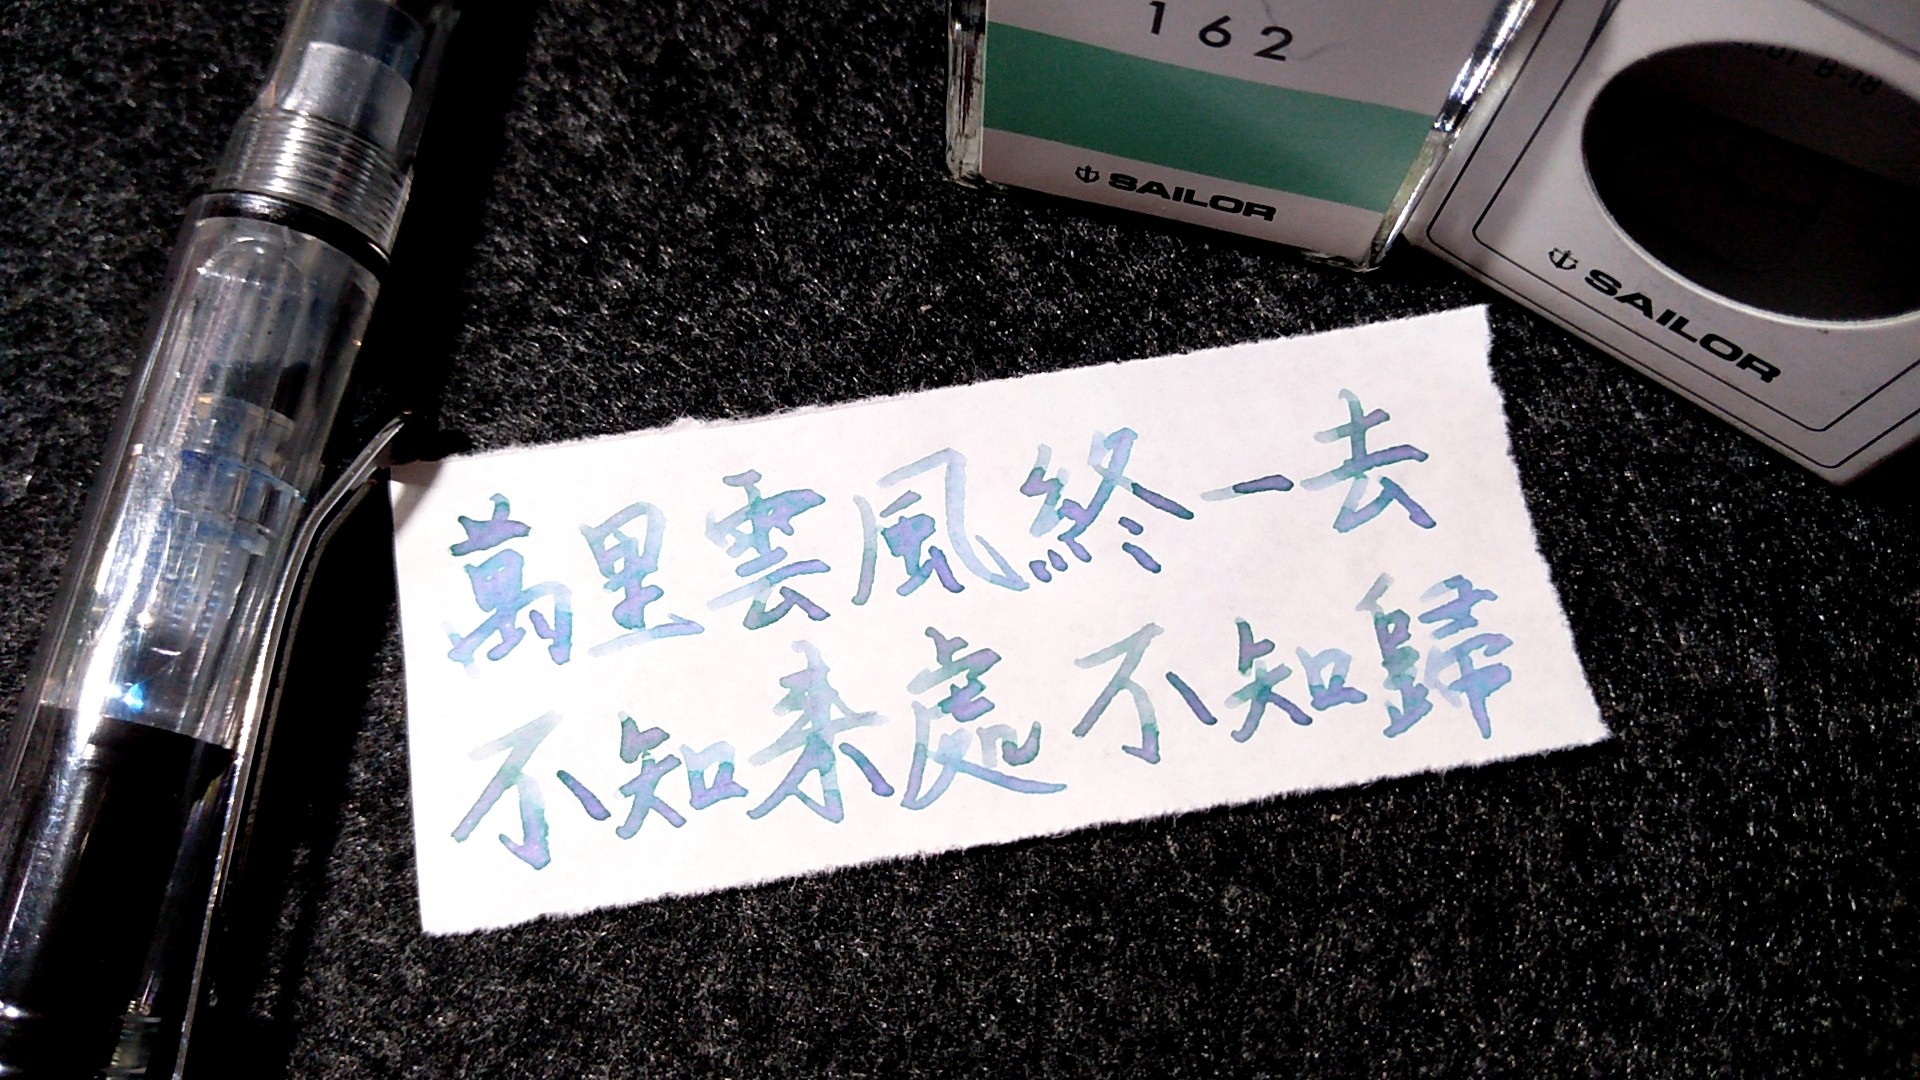 162
SAILOR
SAILOR
萬里雲風終一去
不知来處不知歸